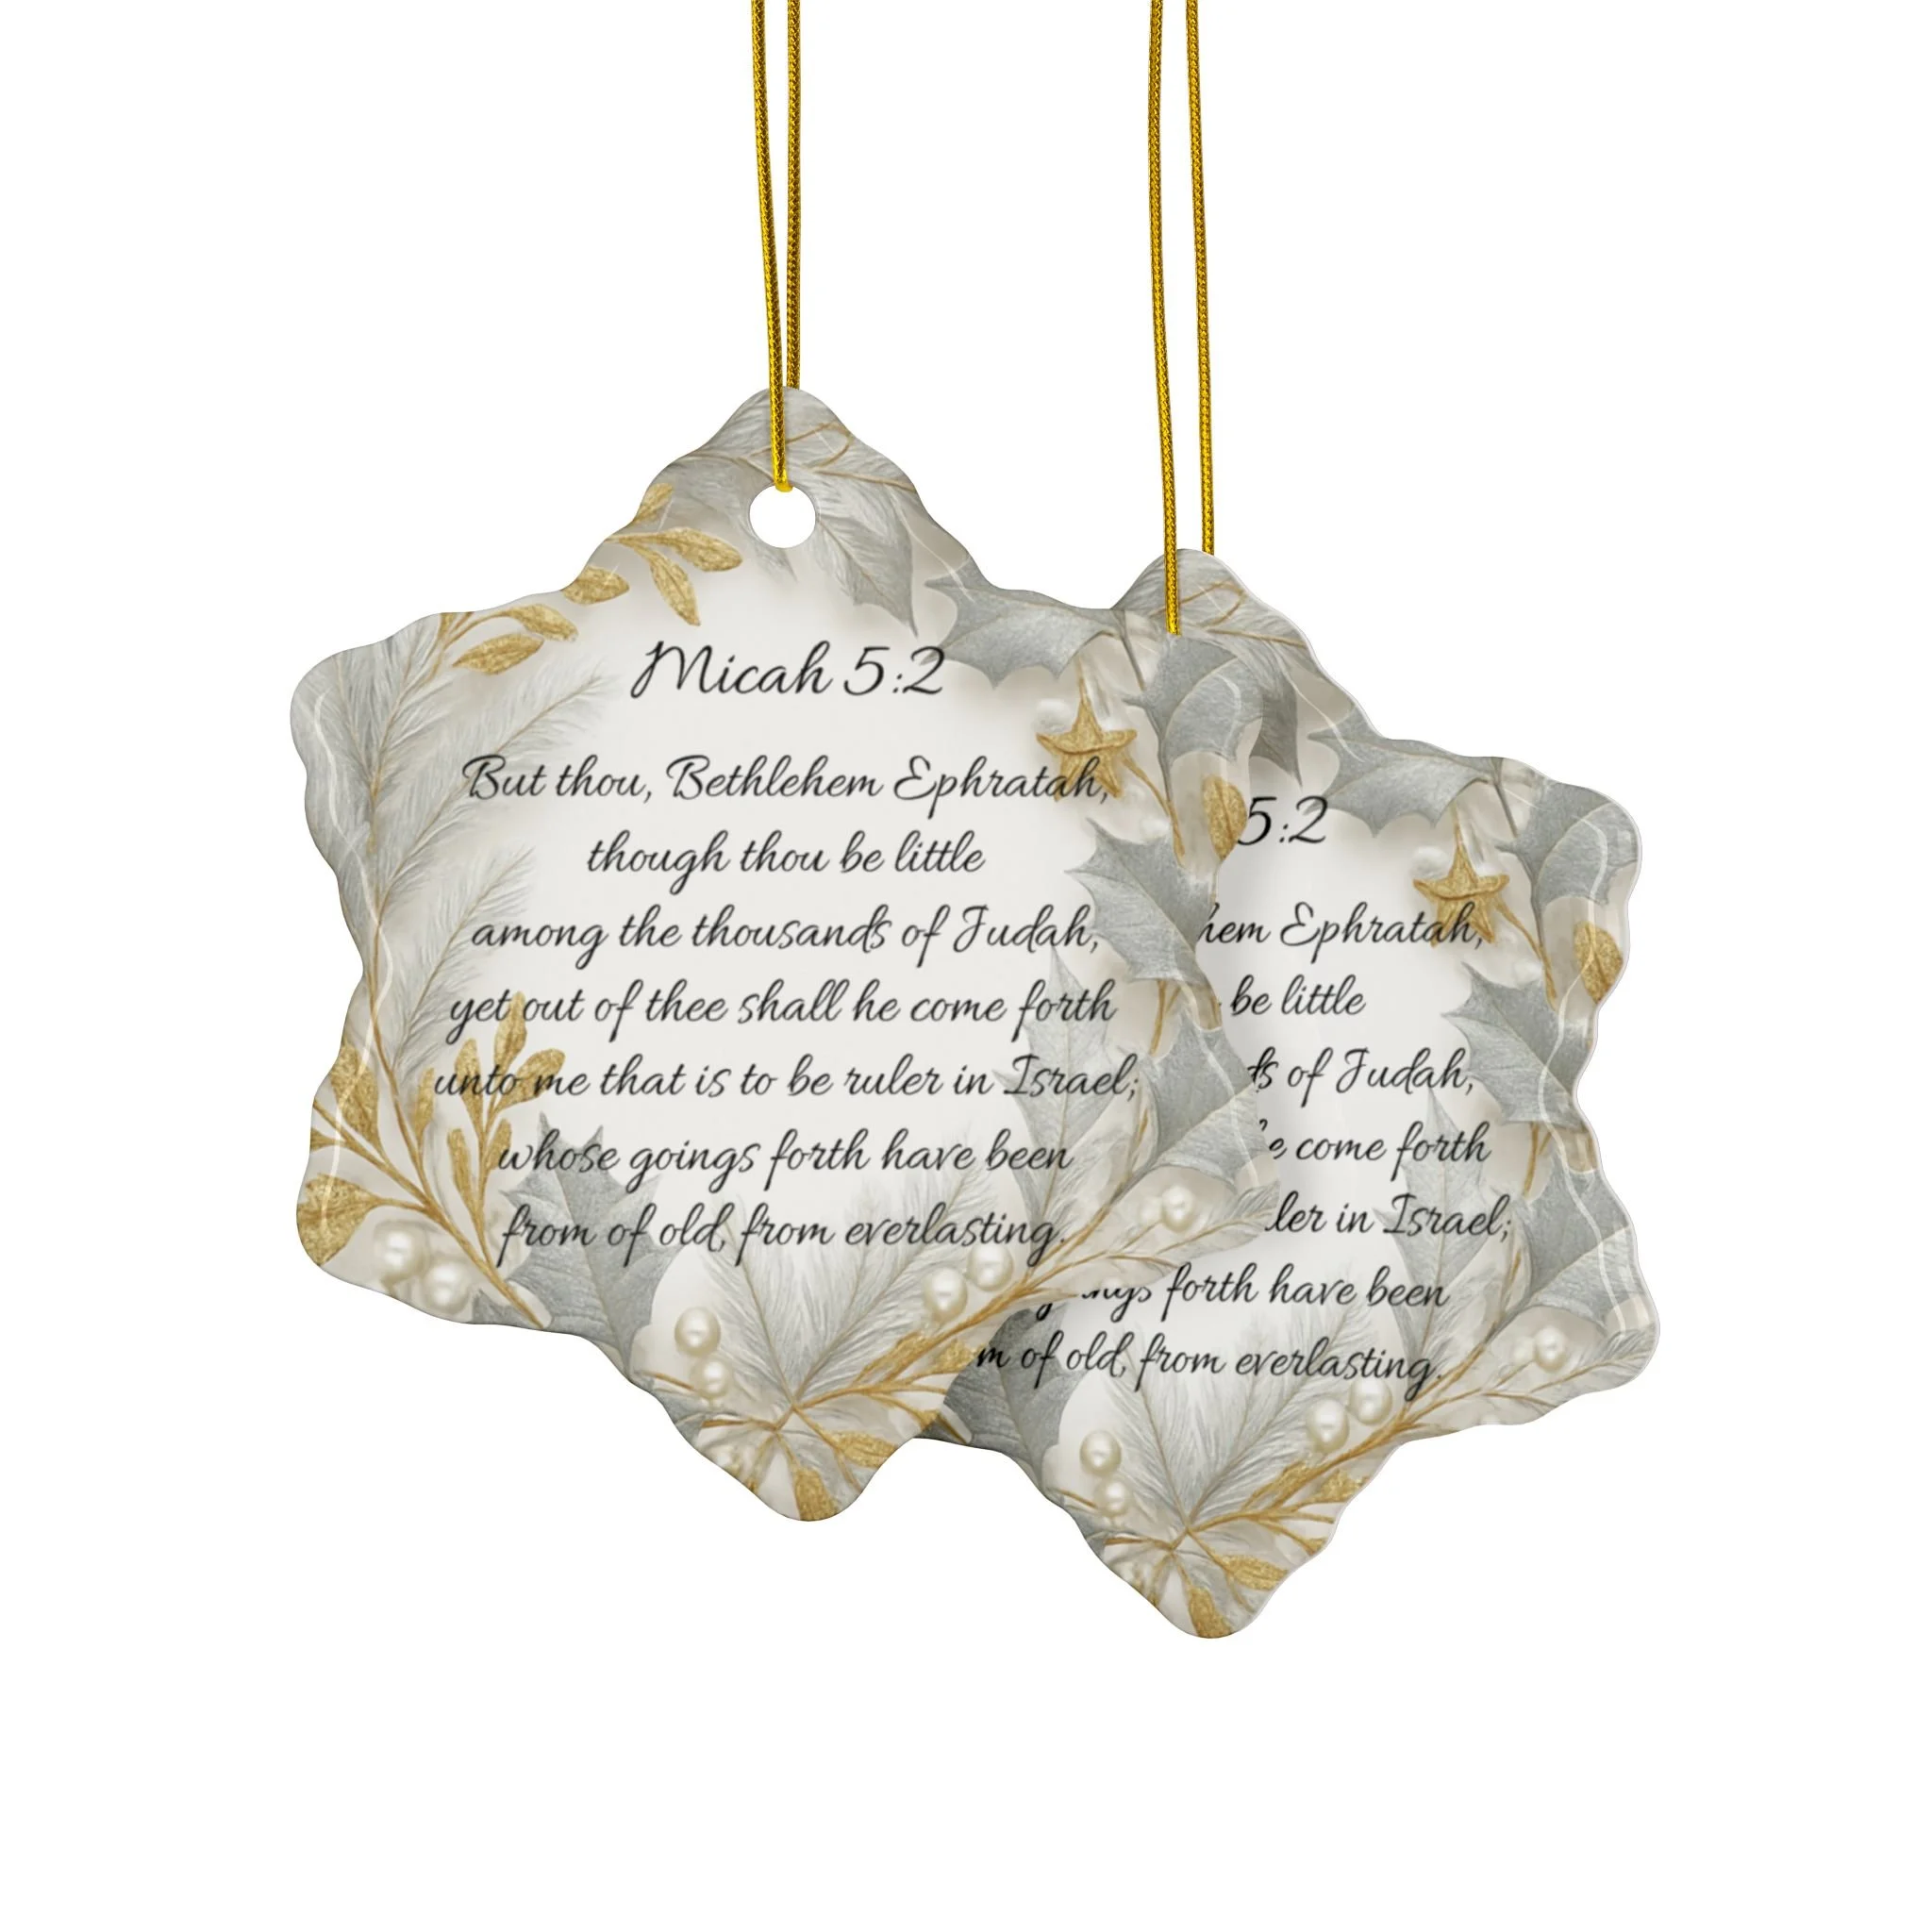 Micah 5:2
But thou, Bethlehem Ephratah,
though thou be little
among the thousands of Judah,
yet out of thee shall he come forth
unto me that is to be ruler in Israel;
whose goings forth have been
from of old, from everlasting.
5:2
Ephratah,
be little
of Judah,
come forth
in Israel;
forth have been
of old, from everlasting.